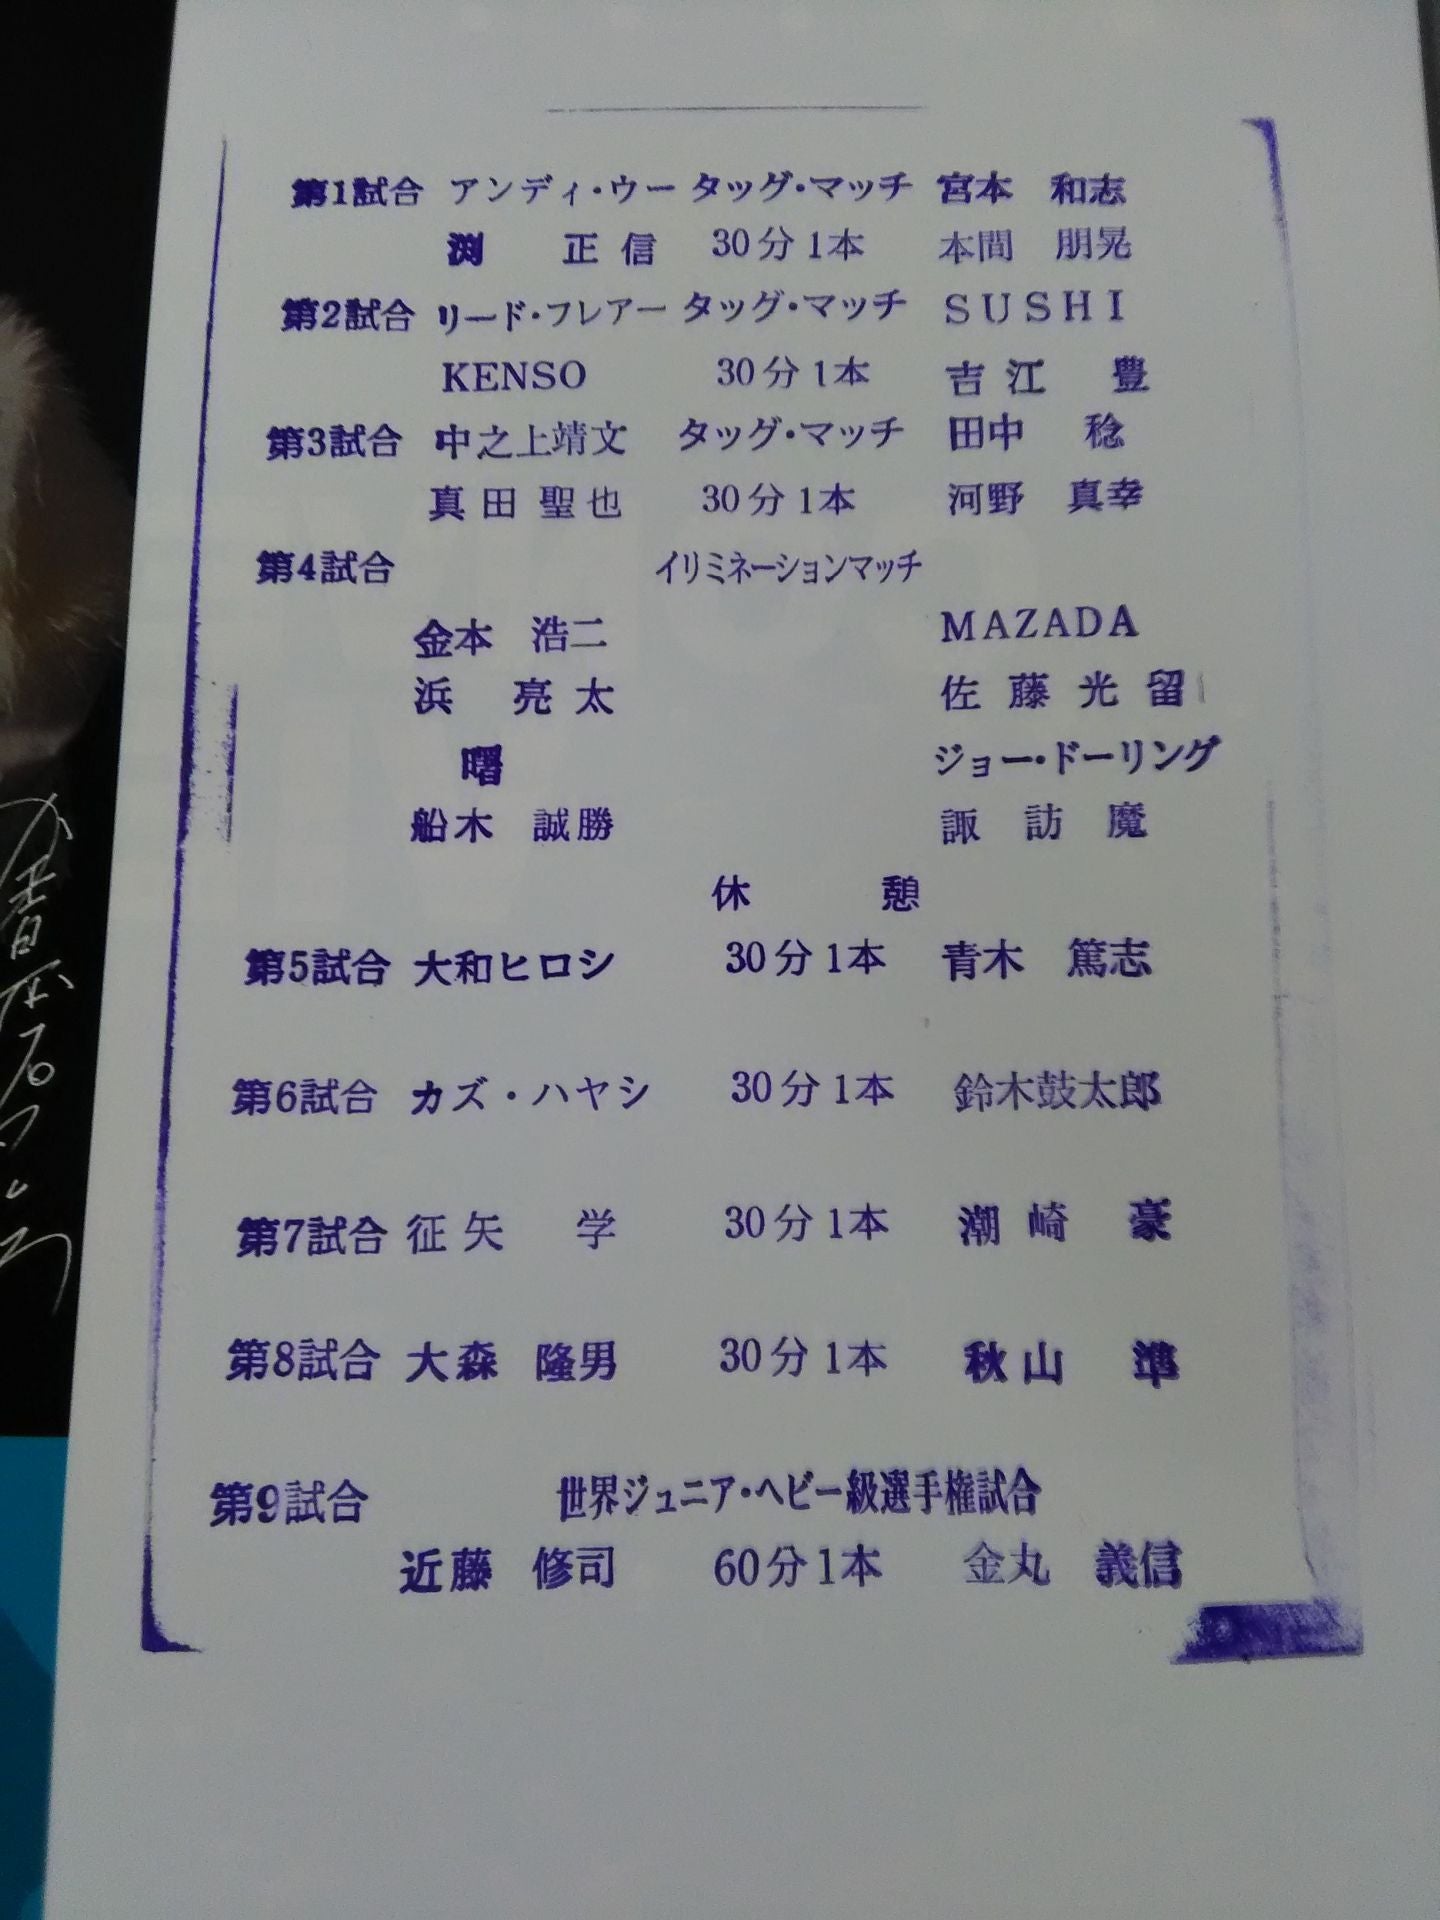 第1試合 アンディ・ウー タッグ・マッチ 宮本 和志
渕 正信 30分1本 本間 朋晃
第2試合 リード・フレアー タッグ・マッチ SUSHI
KENSO 30分1本 吉江 豊
第3試合 中之上靖文 タッグ・マッチ 田中 稔
真田聖也 30分1本 河野 真幸
第4試合 イリミネーションマッチ
金本 浩二 MAZADA
浜 亮太 佐藤光留
曙 ジョー・ドーリング
船木 誠勝 諏訪魔
休憩
第5試合 大和ヒロシ 30分1本 青木 篤志
第6試合 カズ・ハヤシ 30分1本 鈴木鼓太郎
第7試合 征矢 学 30分1本 潮崎 豪
第8試合 大森 隆男 30分1本 秋山 準
第9試合 世界ジュニア・ヘビー級選手権試合
近藤 修司 60分1本 金丸 義信